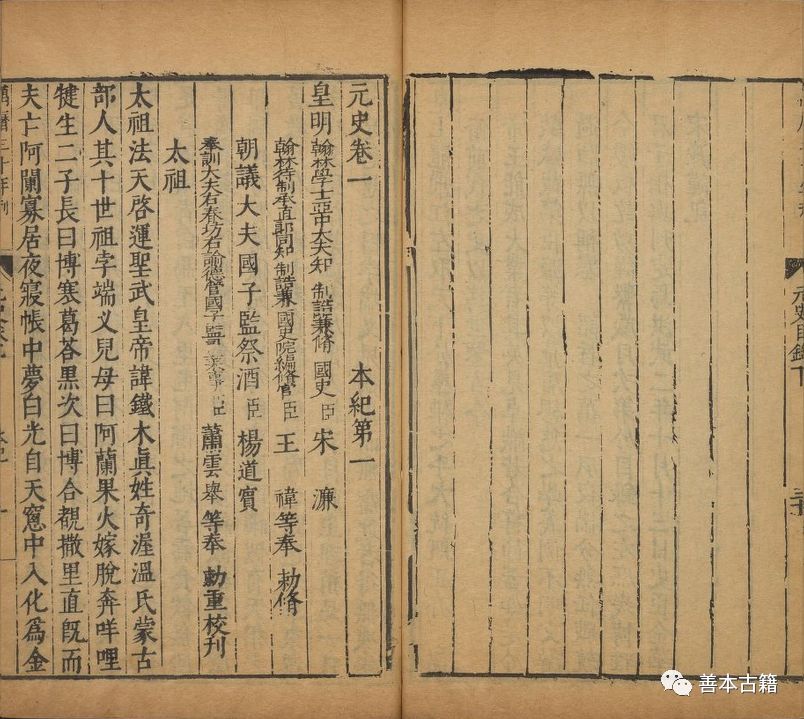 元史目錄下
元史卷一 本紀第一
皇明翰林學士亞中大夫知 制誥兼脩 國史臣宋 濂
翰林待制承直郎同知 制誥兼 國史院編脩官臣王 禕等奉 勑脩
朝議大夫國子監祭酒臣楊道賓
奉訓大夫右春坊右諭德管國子監司業事臣蕭雲舉等奉 勑重校刊
太祖
太祖法天啓運聖武皇帝諱鐵木眞姓奇渥溫氏蒙古
部人其十世祖孛端义兒母曰阿蘭果火嫁脫奔咩哩
犍生二子長曰博寒葛荅黑次曰博合覩撒里直旣而
夫亡阿闌寡居夜寢帳中夢白光自天窻中入化爲金
萬曆三十年刊
元史卷一
本紀
一
善本古籍